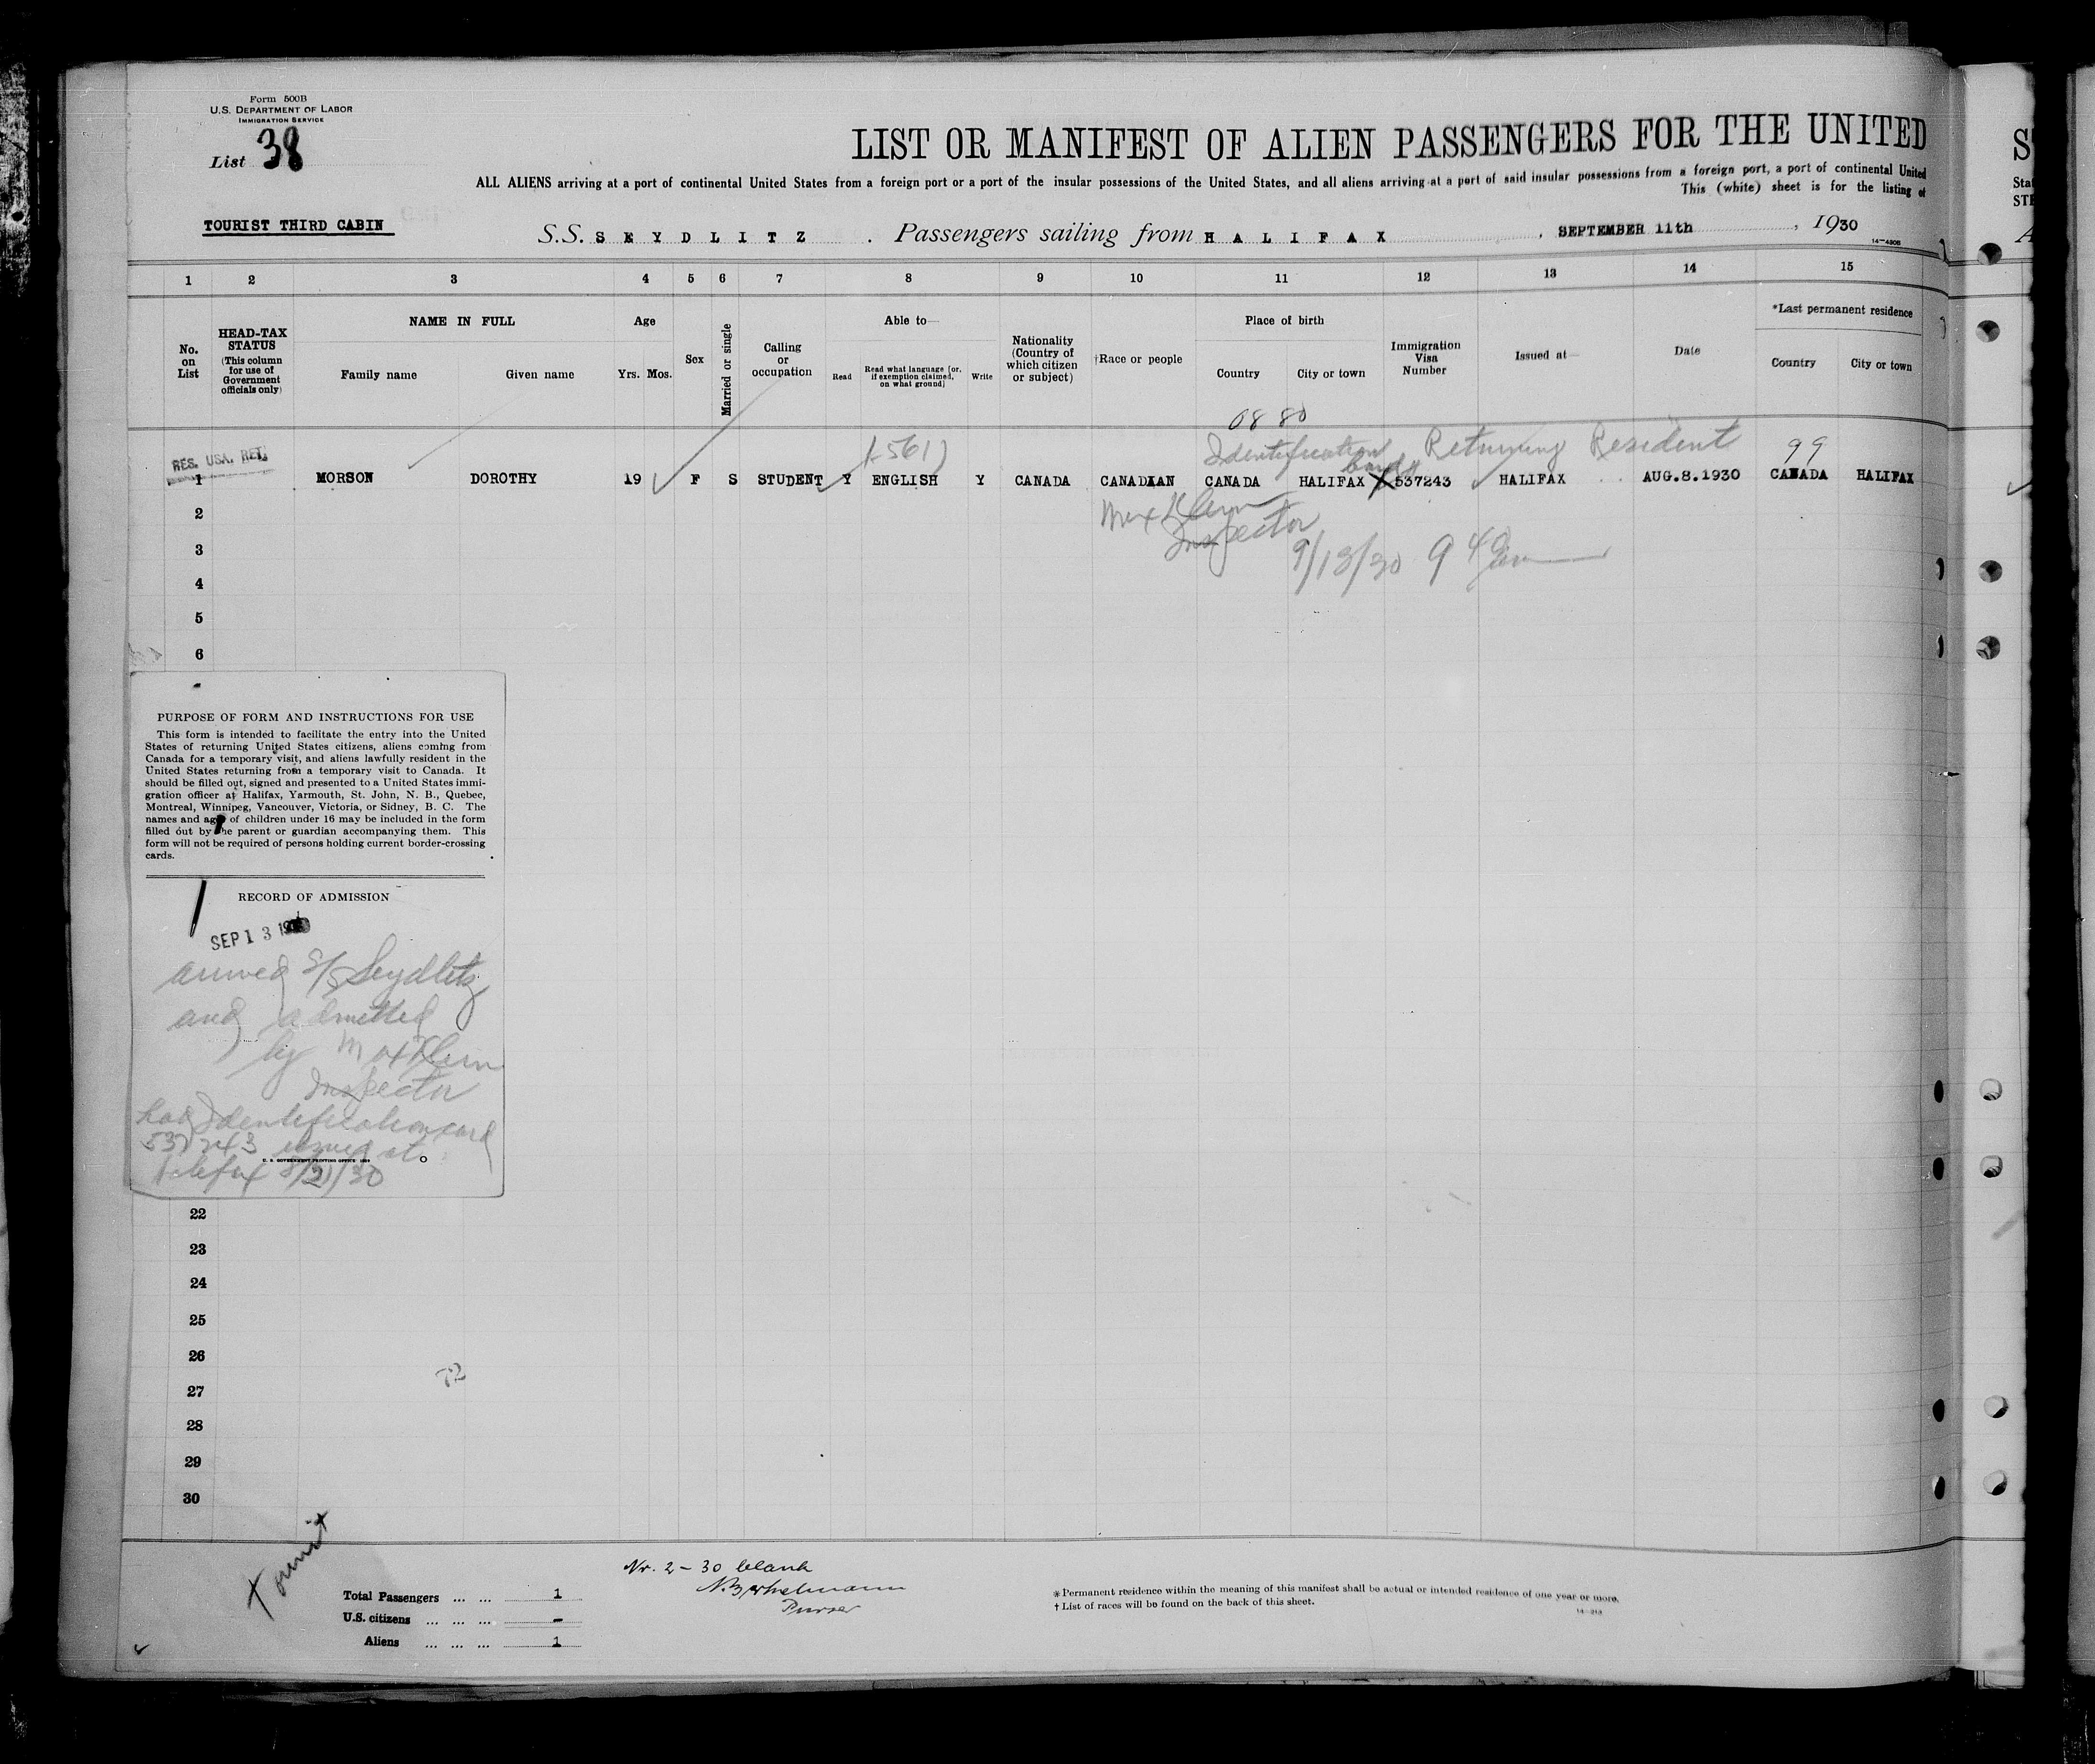 Form 500B
U.S. DEPARTMENT OF LABOR
IMMIGRATION SERVICE
List 38
LIST OR MANIFEST OF ALIEN PASSENGERS FOR THE UNITED
ALL ALIENS arriving at a port of continental United States from a foreign port or a port of the insular possessions of the United States, and all aliens arriving at a port of said insular possessions from a foreign port, a port of continental United
This (white) sheet is for the listing of
TOURIST THIRD CABIN
S.S. SEYDLITZ . Passengers sailing from HALIFAX , SEPTEMBER 11th , 1930
14-430B
1 2 3 4 5 6 7 8 9 10 11 12 13 14 15
No. on List
HEAD-TAX STATUS
(This column for use of Government officials only)
NAME IN FULL
Family name Given name
Age
Yrs. Mos.
Sex
Married or single
Calling or occupation
Able to—
Read
Read what language [or, if exemption claimed, on what ground]
Write
Nationality (Country of which citizen or subject)
†Race or people
Place of birth
Country City or town
Immigration Visa Number
Issued at—
Date
*Last permanent residence
Country City or town
08 80
RES. USA. RET.
(-561)
Identification card #
Returning Resident
99
1 MORSON DOROTHY 19 F S STUDENT Y ENGLISH Y CANADA CANADIAN CANADA HALIFAX 537243 HALIFAX AUG.8.1930 CANADA HALIFAX
Max Klein
Inspector
9/13/30 9
2
3
4
5
6
PURPOSE OF FORM AND INSTRUCTIONS FOR USE
This form is intended to facilitate the entry into the United
States of returning United States citizens, aliens coming from
Canada for a temporary visit, and aliens lawfully resident in the
United States returning from a temporary visit to Canada. It
should be filled out, signed and presented to a United States immi-
gration officer at Halifax, Yarmouth, St. John, N. B., Quebec,
Montreal, Winnipeg, Vancouver, Victoria, or Sidney, B. C. The
names and age of children under 16 may be included in the form
filled out by the parent or guardian accompanying them. This
form will not be required of persons holding current border-crossing
cards.
RECORD OF ADMISSION
SEP 13
arrived S/S Seydlitz
and admitted
by Max Klein
Inspector
has Identification card
537243 issued at
U. S. GOVERNMENT PRINTING OFFICE
Halifax 8/21/30
22
23
24
25
26
72
27
28
29
30
Tourist
Nr. 2-30 blank
Purser
Total Passengers ... ... 1
U.S. citizens ... ... ... -
Aliens ... ... ... 1
*Permanent residence within the meaning of this manifest shall be actual or intended residence of one year or more.
† List of races will be found on the back of this sheet.